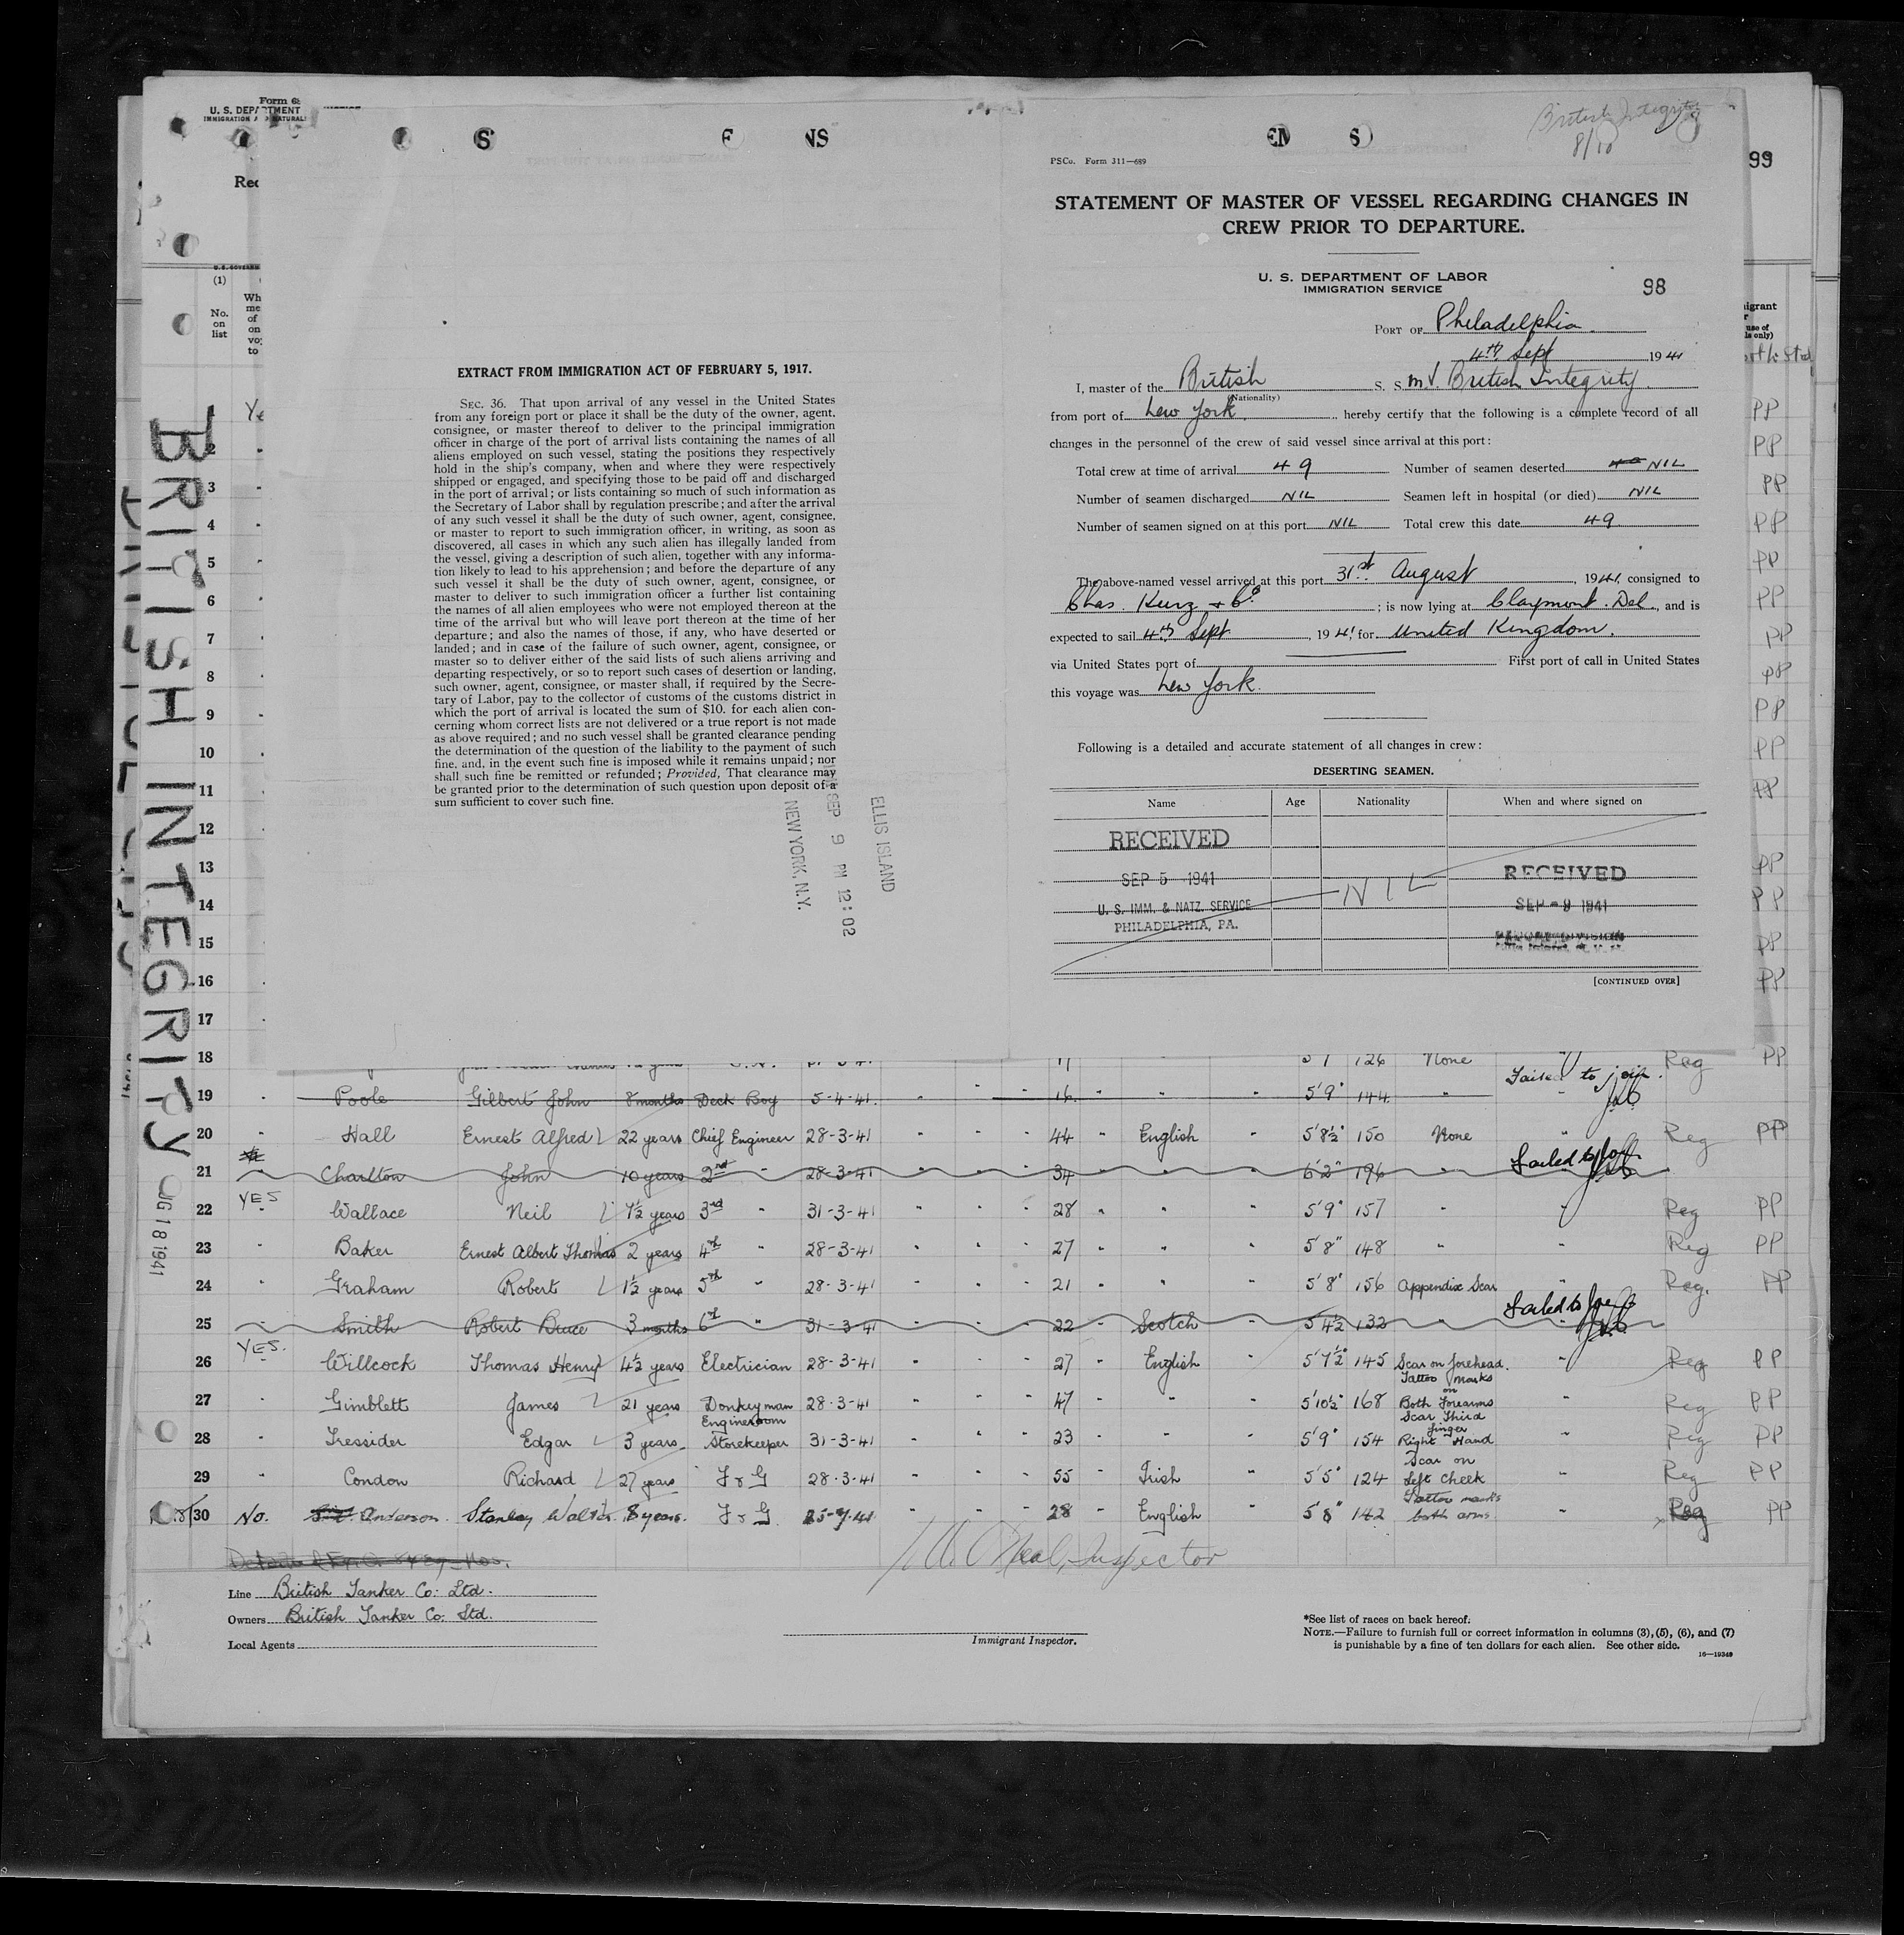 Form 68
U. S. DEPARTMENT
IMMIGRATION AND NATURAL
S E NS EM S
British Integrity
8/10
99
PSCo. Form 311—689
STATEMENT OF MASTER OF VESSEL REGARDING CHANGES IN
CREW PRIOR TO DEPARTURE.
U. S. DEPARTMENT OF LABOR
IMMIGRATION SERVICE
98
PORT OF Philadelphia
4th Sept 1941
I, master of the British S. S. M.V. British Integrity
(Nationality)
from port of New York, hereby certify that the following is a complete record of all
changes in the personnel of the crew of said vessel since arrival at this port:
Total crew at time of arrival 49 Number of seamen deserted NIL
Number of seamen discharged NIL Seamen left in hospital (or died) NIL
Number of seamen signed on at this port NIL Total crew this date 49
The above-named vessel arrived at this port 31st August, 1941, consigned to
Chas. Kurz & Co; is now lying at Claymont. Del, and is
expected to sail 4th Sept, 1941 for United Kingdom.
via United States port of First port of call in United States
this voyage was New York.
Following is a detailed and accurate statement of all changes in crew:
DESERTING SEAMEN.
Name Age Nationality When and where signed on
RECEIVED
SEP 5 1941
U. S. IMM. & NATZ. SERVICE
PHILADELPHIA, PA.
NIL
RECEIVED
SEP - 9 1941
RECORD DIVISION
[CONTINUED OVER]
EXTRACT FROM IMMIGRATION ACT OF FEBRUARY 5, 1917.
SEC. 36. That upon arrival of any vessel in the United States
from any foreign port or place it shall be the duty of the owner, agent,
consignee, or master thereof to deliver to the principal immigration
officer in charge of the port of arrival lists containing the names of all
aliens employed on such vessel, stating the positions they respectively
hold in the ship's company, when and where they were respectively
shipped or engaged, and specifying those to be paid off and discharged
in the port of arrival; or lists containing so much of such information as
the Secretary of Labor shall by regulation prescribe; and after the arrival
of any such vessel it shall be the duty of such owner, agent, consignee,
or master to report to such immigration officer, in writing, as soon as
discovered, all cases in which any such alien has illegally landed from
the vessel, giving a description of such alien, together with any informa-
tion likely to lead to his apprehension; and before the departure of any
such vessel it shall be the duty of such owner, agent, consignee, or
master to deliver to such immigration officer a further list containing
the names of all alien employees who were not employed thereon at the
time of the arrival but who will leave port thereon at the time of her
departure; and also the names of those, if any, who have deserted or
landed; and in case of the failure of such owner, agent, consignee, or
master so to deliver either of the said lists of such aliens arriving and
departing respectively, or so to report such cases of desertion or landing,
such owner, agent, consignee, or master shall, if required by the Secre-
tary of Labor, pay to the collector of customs of the customs district in
which the port of arrival is located the sum of $10. for each alien con-
cerning whom correct lists are not delivered or a true report is not made
as above required; and no such vessel shall be granted clearance pending
the determination of the question of the liability to the payment of such
fine, and, in the event such fine is imposed while it remains unpaid; nor
shall such fine be remitted or refunded; Provided, That clearance may
be granted prior to the determination of such question upon deposit of a
sum sufficient to cover such fine.
ELLIS ISLAND
SEP 9 PM 12:02
NEW YORK, N.Y.
BRITISH INTEGRITY
UG 18 1941
(1)
No.
on
list
2
3
4
5
6
7
8
9
10
11
12
13
14
15
16
17
18 5'7 126 None Reg PP
19 Poole Gilbert John 8 months Deck Boy 5-4-41 16 5'9" 144 Failed to join.
20 Hall Ernest Alfred 22 years Chief Engineer 28-3-41 44 English 5'8½" 150 None Reg PP
21 Charlton John 10 years 2nd " 28-3-41 34 6'2" 196 Failed to join
22 YES Wallace Neil 7½ years 3rd " 31-3-41 28 " 5'9" 157 " Reg PP
23 " Baker Ernest Albert Thomas 2 years 4th " 28-3-41 27 " 5'8" 148 " Reg PP
24 " Graham Robert 1½ years 5th " 28-3-41 21 " 5'8" 156 Appendix Scar Reg. PP
25 Smith Robert Bruce 3 months 6th " 31-3-41 22 Scotch 5'4½ 132 " Failed to join
26 YES. Willcock Thomas Henry 4½ years Electrician 28-3-41 27 English 5'7½" 145 Scar on forehead. Reg PP
27 " Gimblett James 21 years Donkeyman 28-3-41 47 " 5'10½" 168 Tattoo marks on Both Forearms Reg PP
28 " Tressider Edgar 3 years Engineroom Storekeeper 31-3-41 23 " 5'9" 154 Scar Third finger Right Hand Reg PP
29 " Condon Richard 27 years F & G 28-3-41 55 Irish 5'5" 124 Scar on Left Cheek Reg PP
30 No. Anderson. Stanley Walter. 8 years. F & G 25-7-41 28 English 5'8" 142 Tattoo marks both arms Reg PP
Inspector
Line British Tanker Co: Ltd.
Owners British Tanker Co. Ltd.
Local Agents
Immigrant Inspector.
*See list of races on back hereof.
NOTE.—Failure to furnish full or correct information in columns (3), (5), (6), and (7)
is punishable by a fine of ten dollars for each alien. See other side.
16—19349